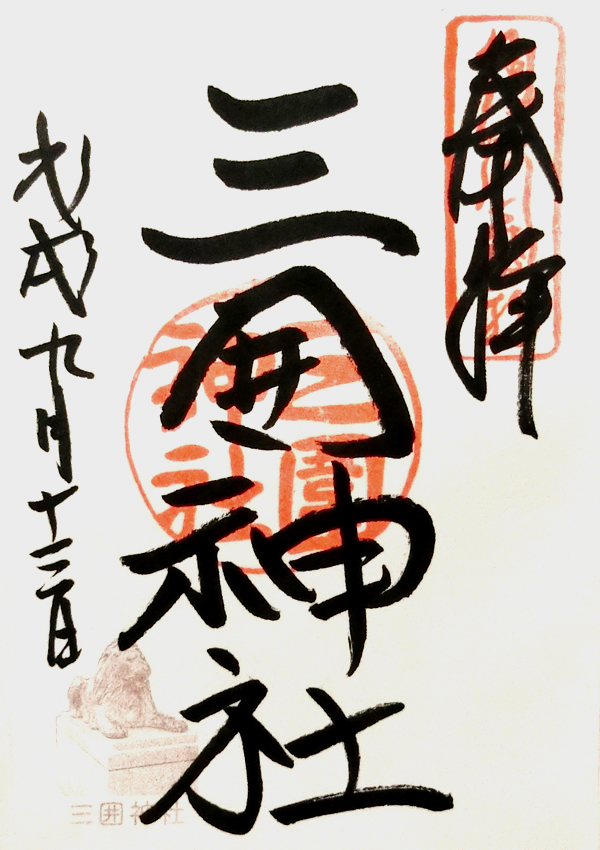 奉拝
三囲神社
戊戌九月十二日
三囲神社